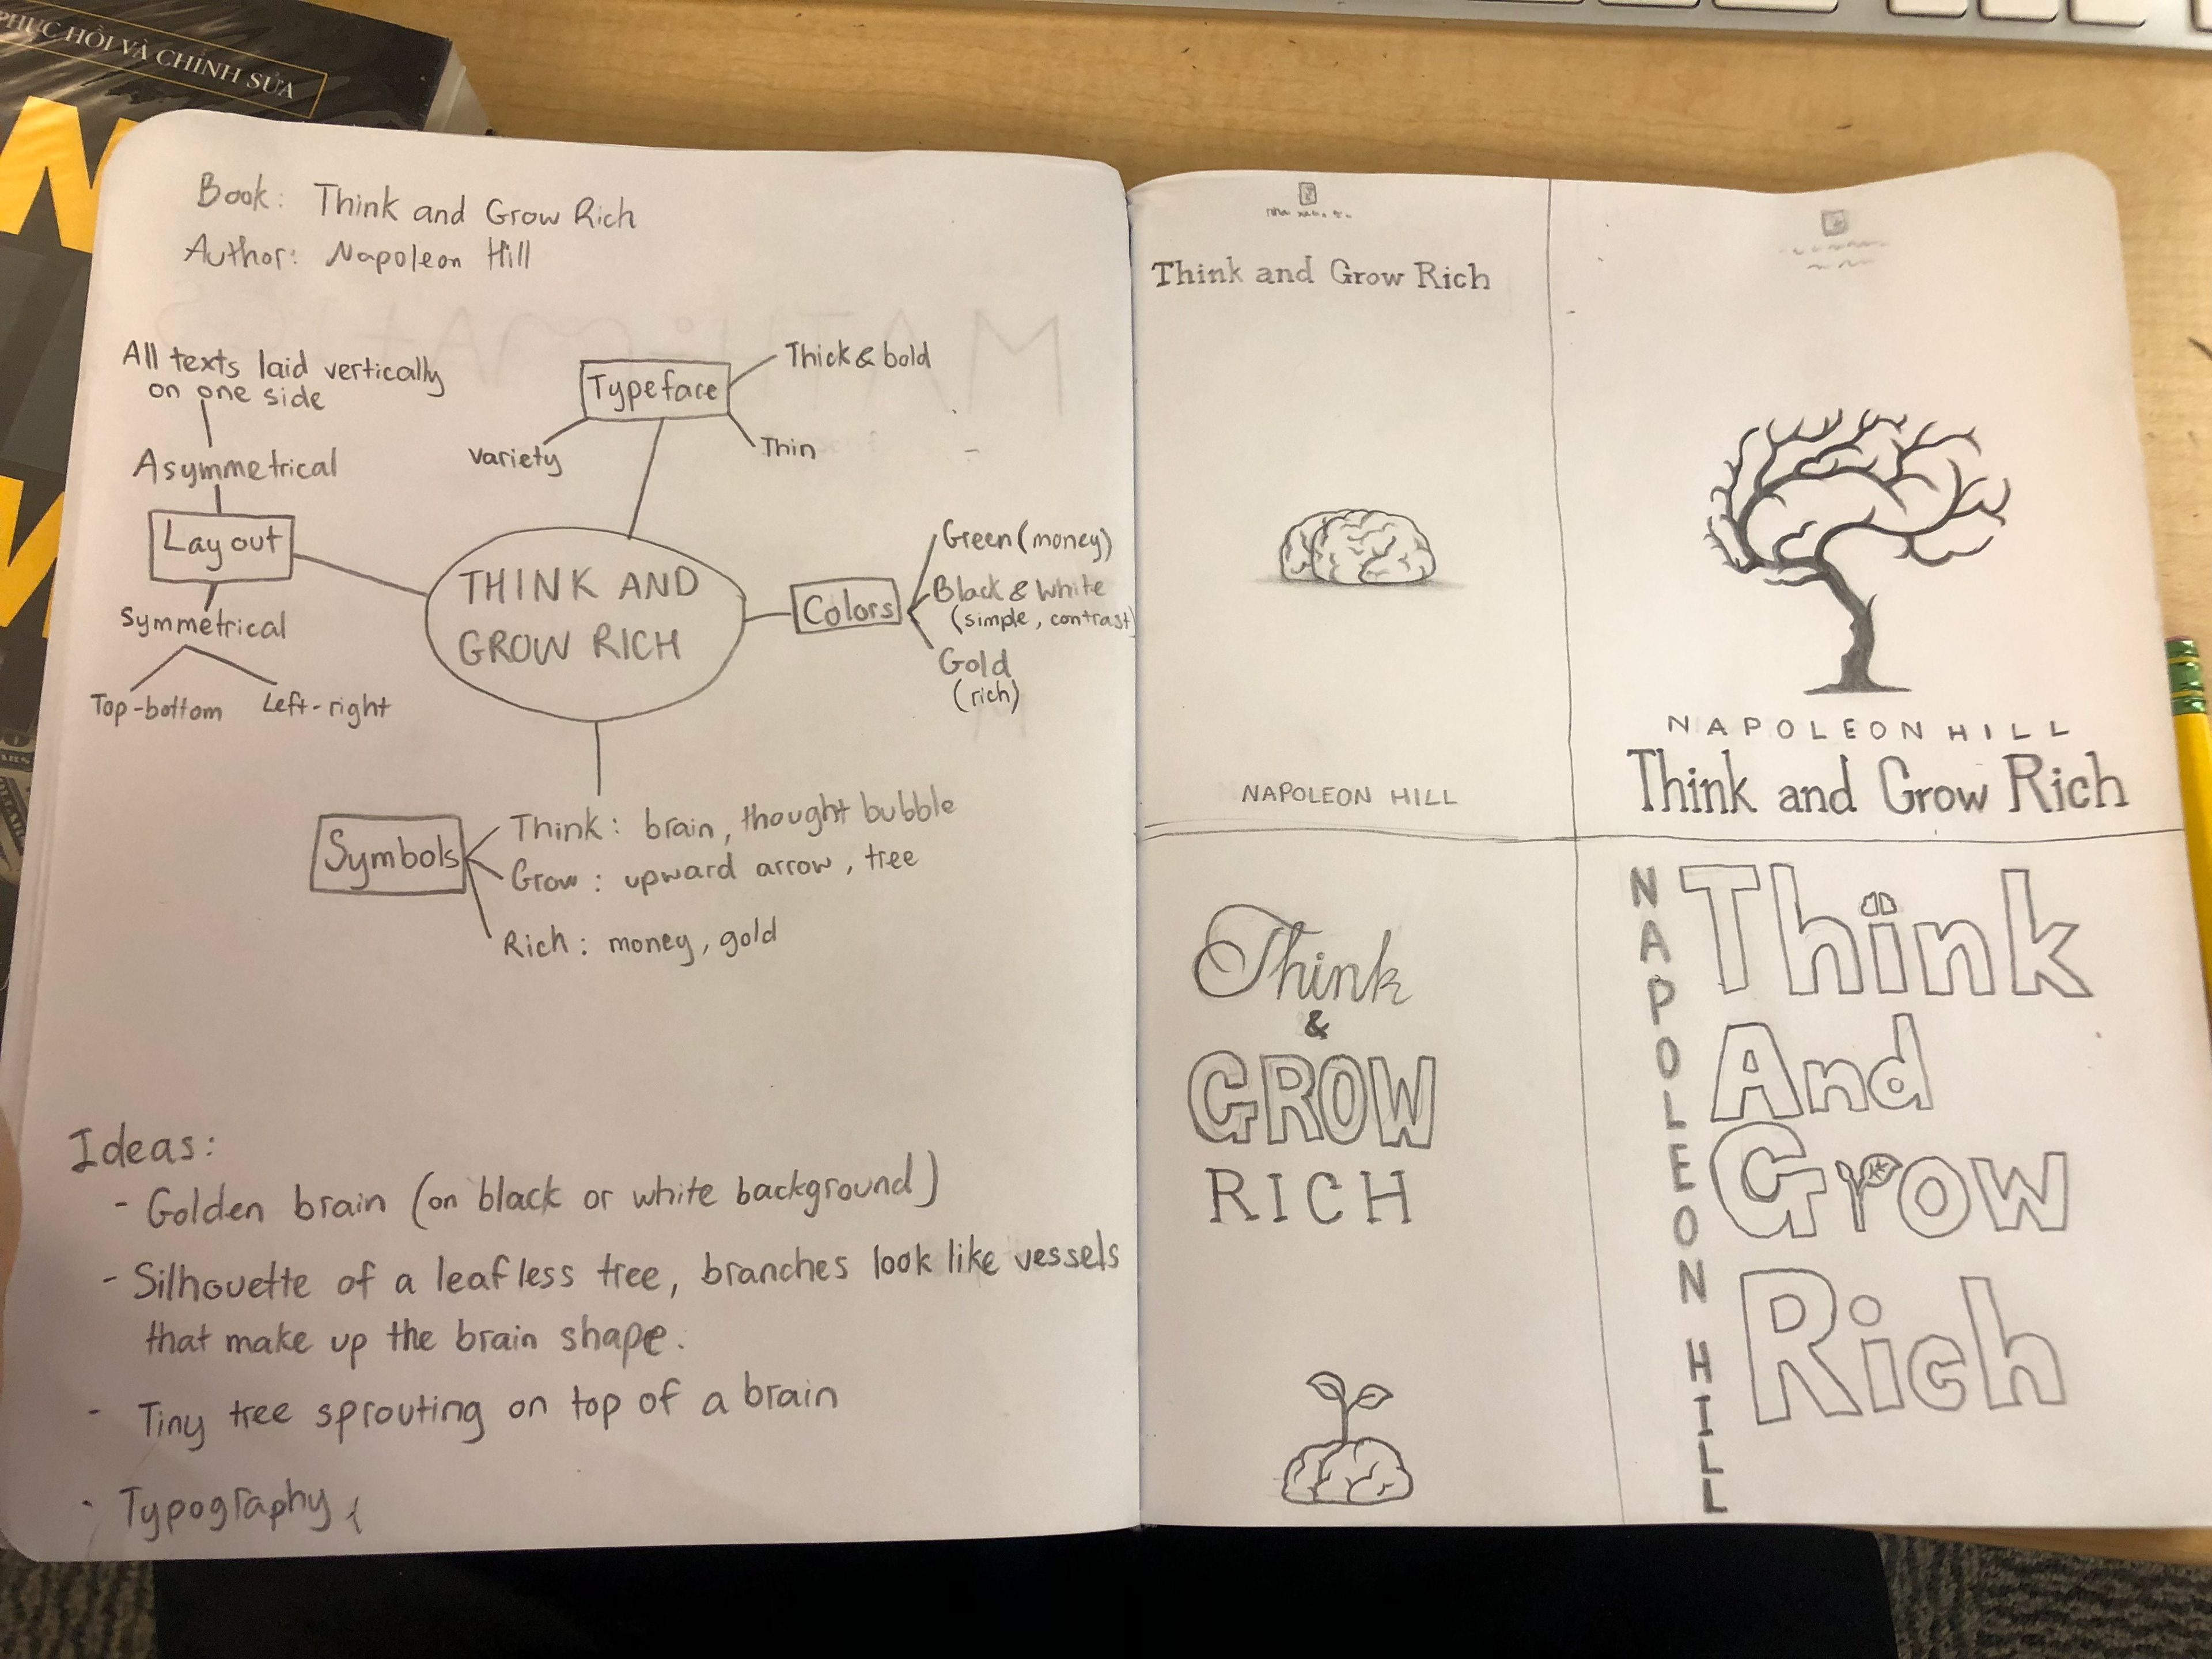 PHỤC HỒI VÀ CHỈNH SỬA
Book: Think and Grow Rich
Author: Napoleon Hill
All texts laid vertically
on one side
Asymmetrical
Layout
Symmetrical
Top-bottom
Left-right
Typeface
Thick & bold
Variety
Thin
THINK AND
GROW RICH
Colors
Green (money)
Black & White
(simple, contrast)
Gold
(rich)
Symbols
Think: brain, thought bubble
Grow: upward arrow, tree
Rich: money, gold
Ideas:
- Golden brain (on black or white background)
- Silhouette of a leafless tree, branches look like vessels
that make up the brain shape.
- Tiny tree sprouting on top of a brain
- Typography
Think and Grow Rich
NAPOLEON HILL
NAPOLEON HILL
Think and Grow Rich
Think
&
GROW
RICH
NAPOLEON HILL
Think
And
Grow
Rich